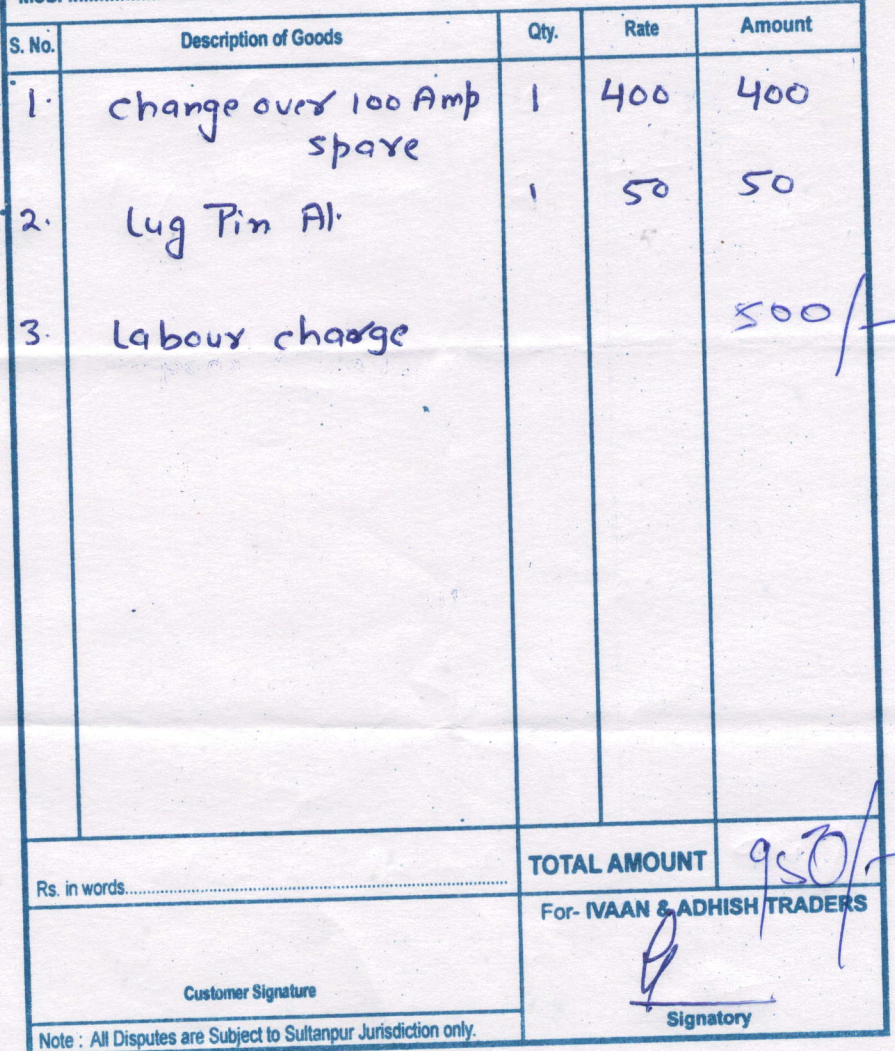 S. No. Description of Goods Qty. Rate Amount
1. change over 100 Amp 1 400 400
spare
2. Lug Pin Al. 1 50 50
3. Labour charge 500/-
Rs. in words TOTAL AMOUNT 950/-
For- IVAAN & ADHISH TRADERS
Customer Signature
Signatory
Note : All Disputes are Subject to Sultanpur Jurisdiction only.